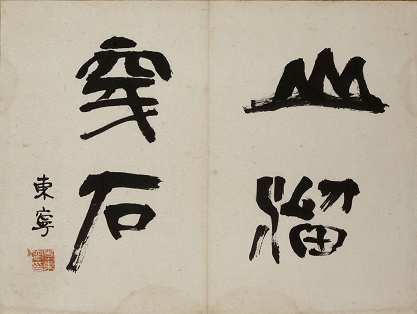 山溜
穿石
東寧